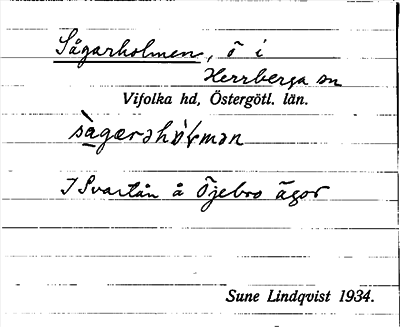 Sågarholmen, ö i
Herrberga sn
Vifolka hd, Östergötl. län.
sàgærəhɷ̀ɫmən
I Svartån å Öjebro ägor
Sune Lindqvist 1934.